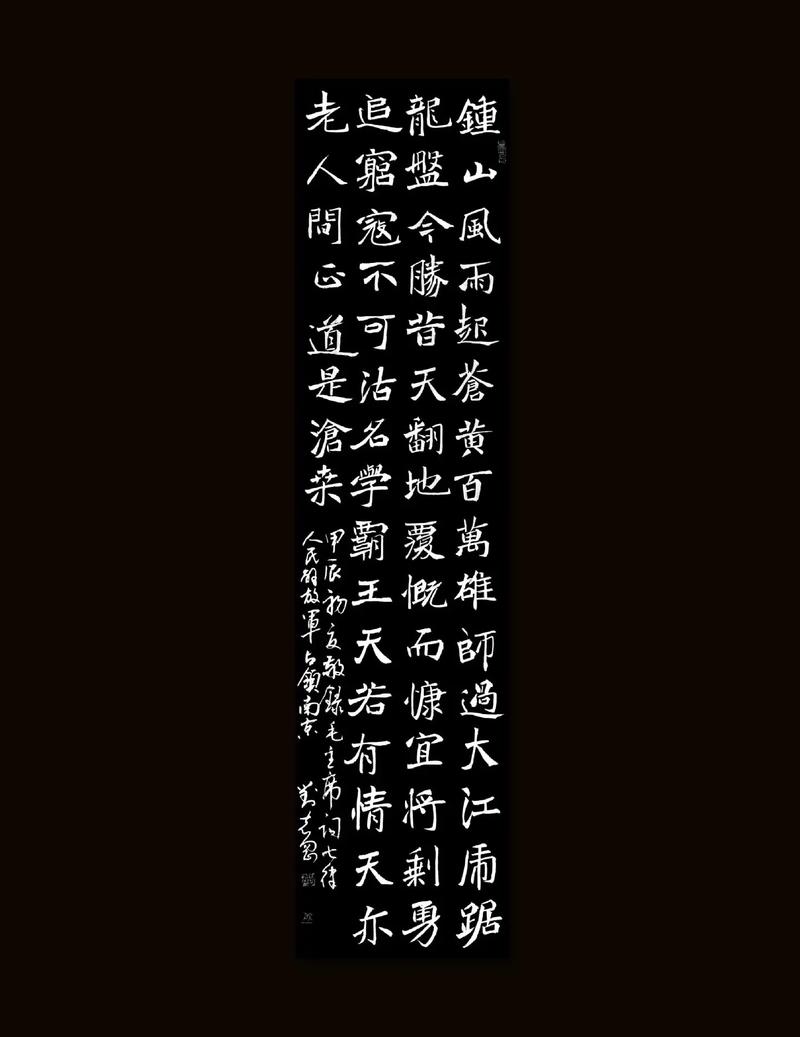 鍾山風雨起蒼黄百萬雄師過大江虎踞
龍盤今勝昔天翻地覆慨而慷宜将剩勇
追窮寇不可沽名學霸王天若有情天亦
老人間正道是滄桒
甲辰初夏敬録毛主席詞七律
人民解放軍占領南京